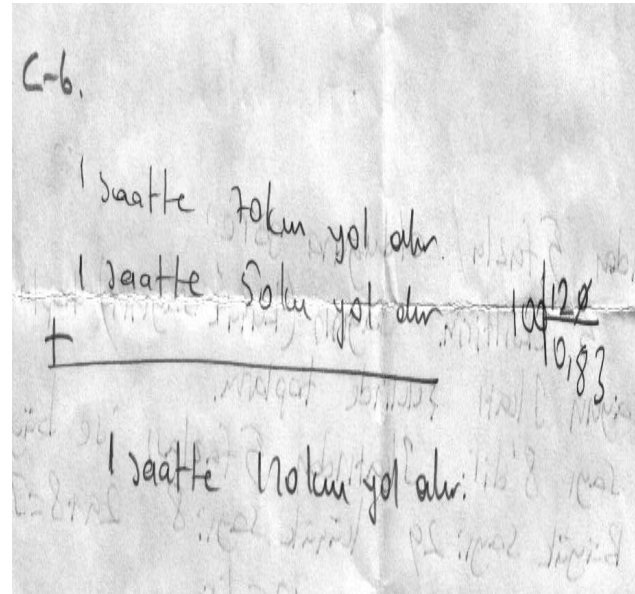 C-6.
1 saatte 70km yol alır.
1 saatte 50km yol alır.
+
100 120
0,83
1 saatte 120km yol alır.